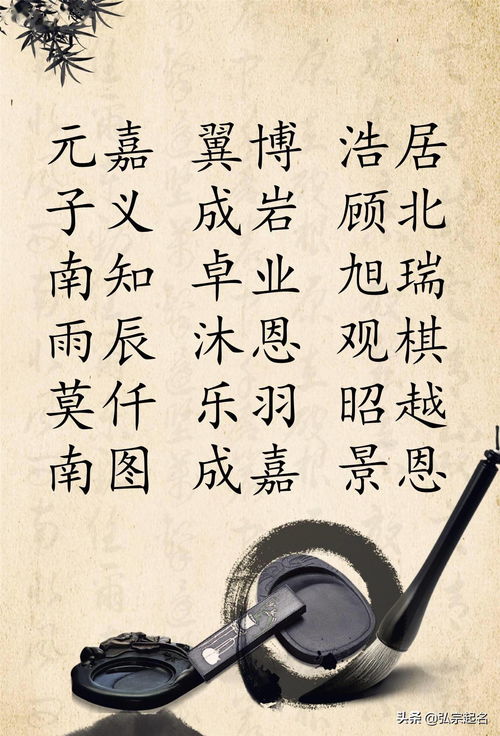 元嘉 翼博 浩居
子义 成岩 顾北
南知 卓业 旭瑞
雨辰 沐恩 观棋
莫仟 乐羽 昭越
南图 成嘉 景恩
头条 @弘宗起名